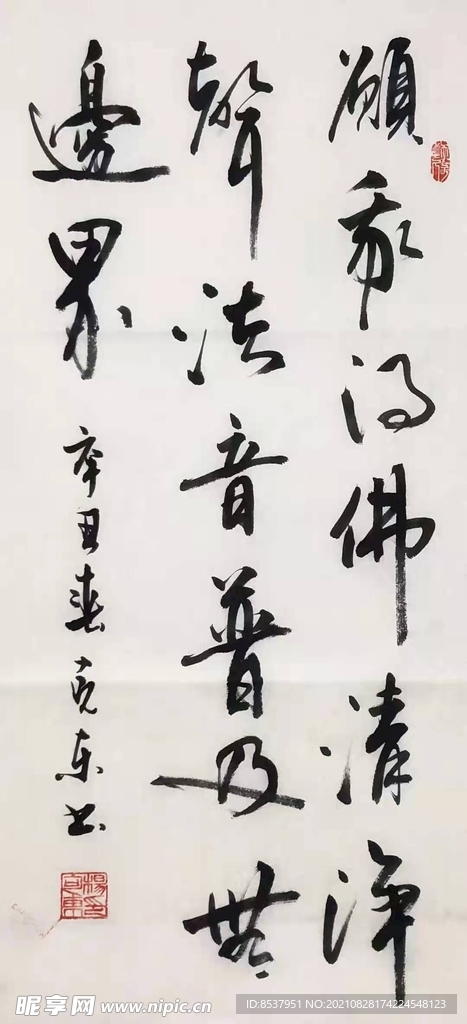 願我得佛清淨
聲法音普及無
邊界
辛丑春克东书
昵享网 www.nipic.cn
ID:8537951 NO:20210828174224548123